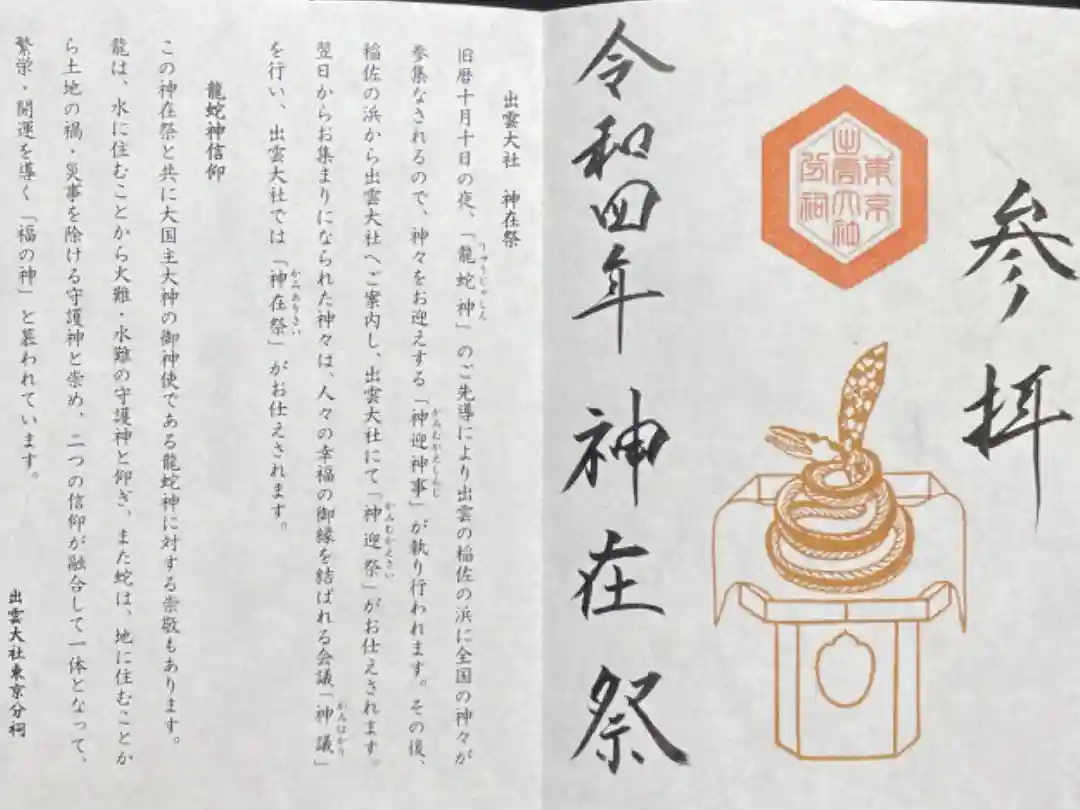 参拝
東京
出雲大社
分祠
令和四年 神在祭
出雲大社 神在祭
旧暦十月十日の夜、「龍蛇神」のご先導により出雲の稲佐の浜に全国の神々が
りゅうじゃしん
参集なされるので、神々をお迎えする「神迎神事」が執り行われます。その後、
かみむかえしんじ
稲佐の浜から出雲大社へご案内し、出雲大社にて「神迎祭」がお仕えされます。
かみむかえさい
翌日からお集まりになられた神々は、人々の幸福の御縁を結ばれる会議「神議」
かみはかり
を行い、出雲大社では「神在祭」がお仕えされます。
かみありさい
龍蛇神信仰
この神在祭と共に大国主大神の御神使である龍蛇神に対する崇敬もあります。
龍は、水に住むことから火難・水難の守護神と仰ぎ、また蛇は、地に住むことか
ら土地の禍・災事を除ける守護神と崇め、二つの信仰が融合して一体となって、
繁栄・開運を導く「福の神」と慕われています。
出雲大社東京分祠